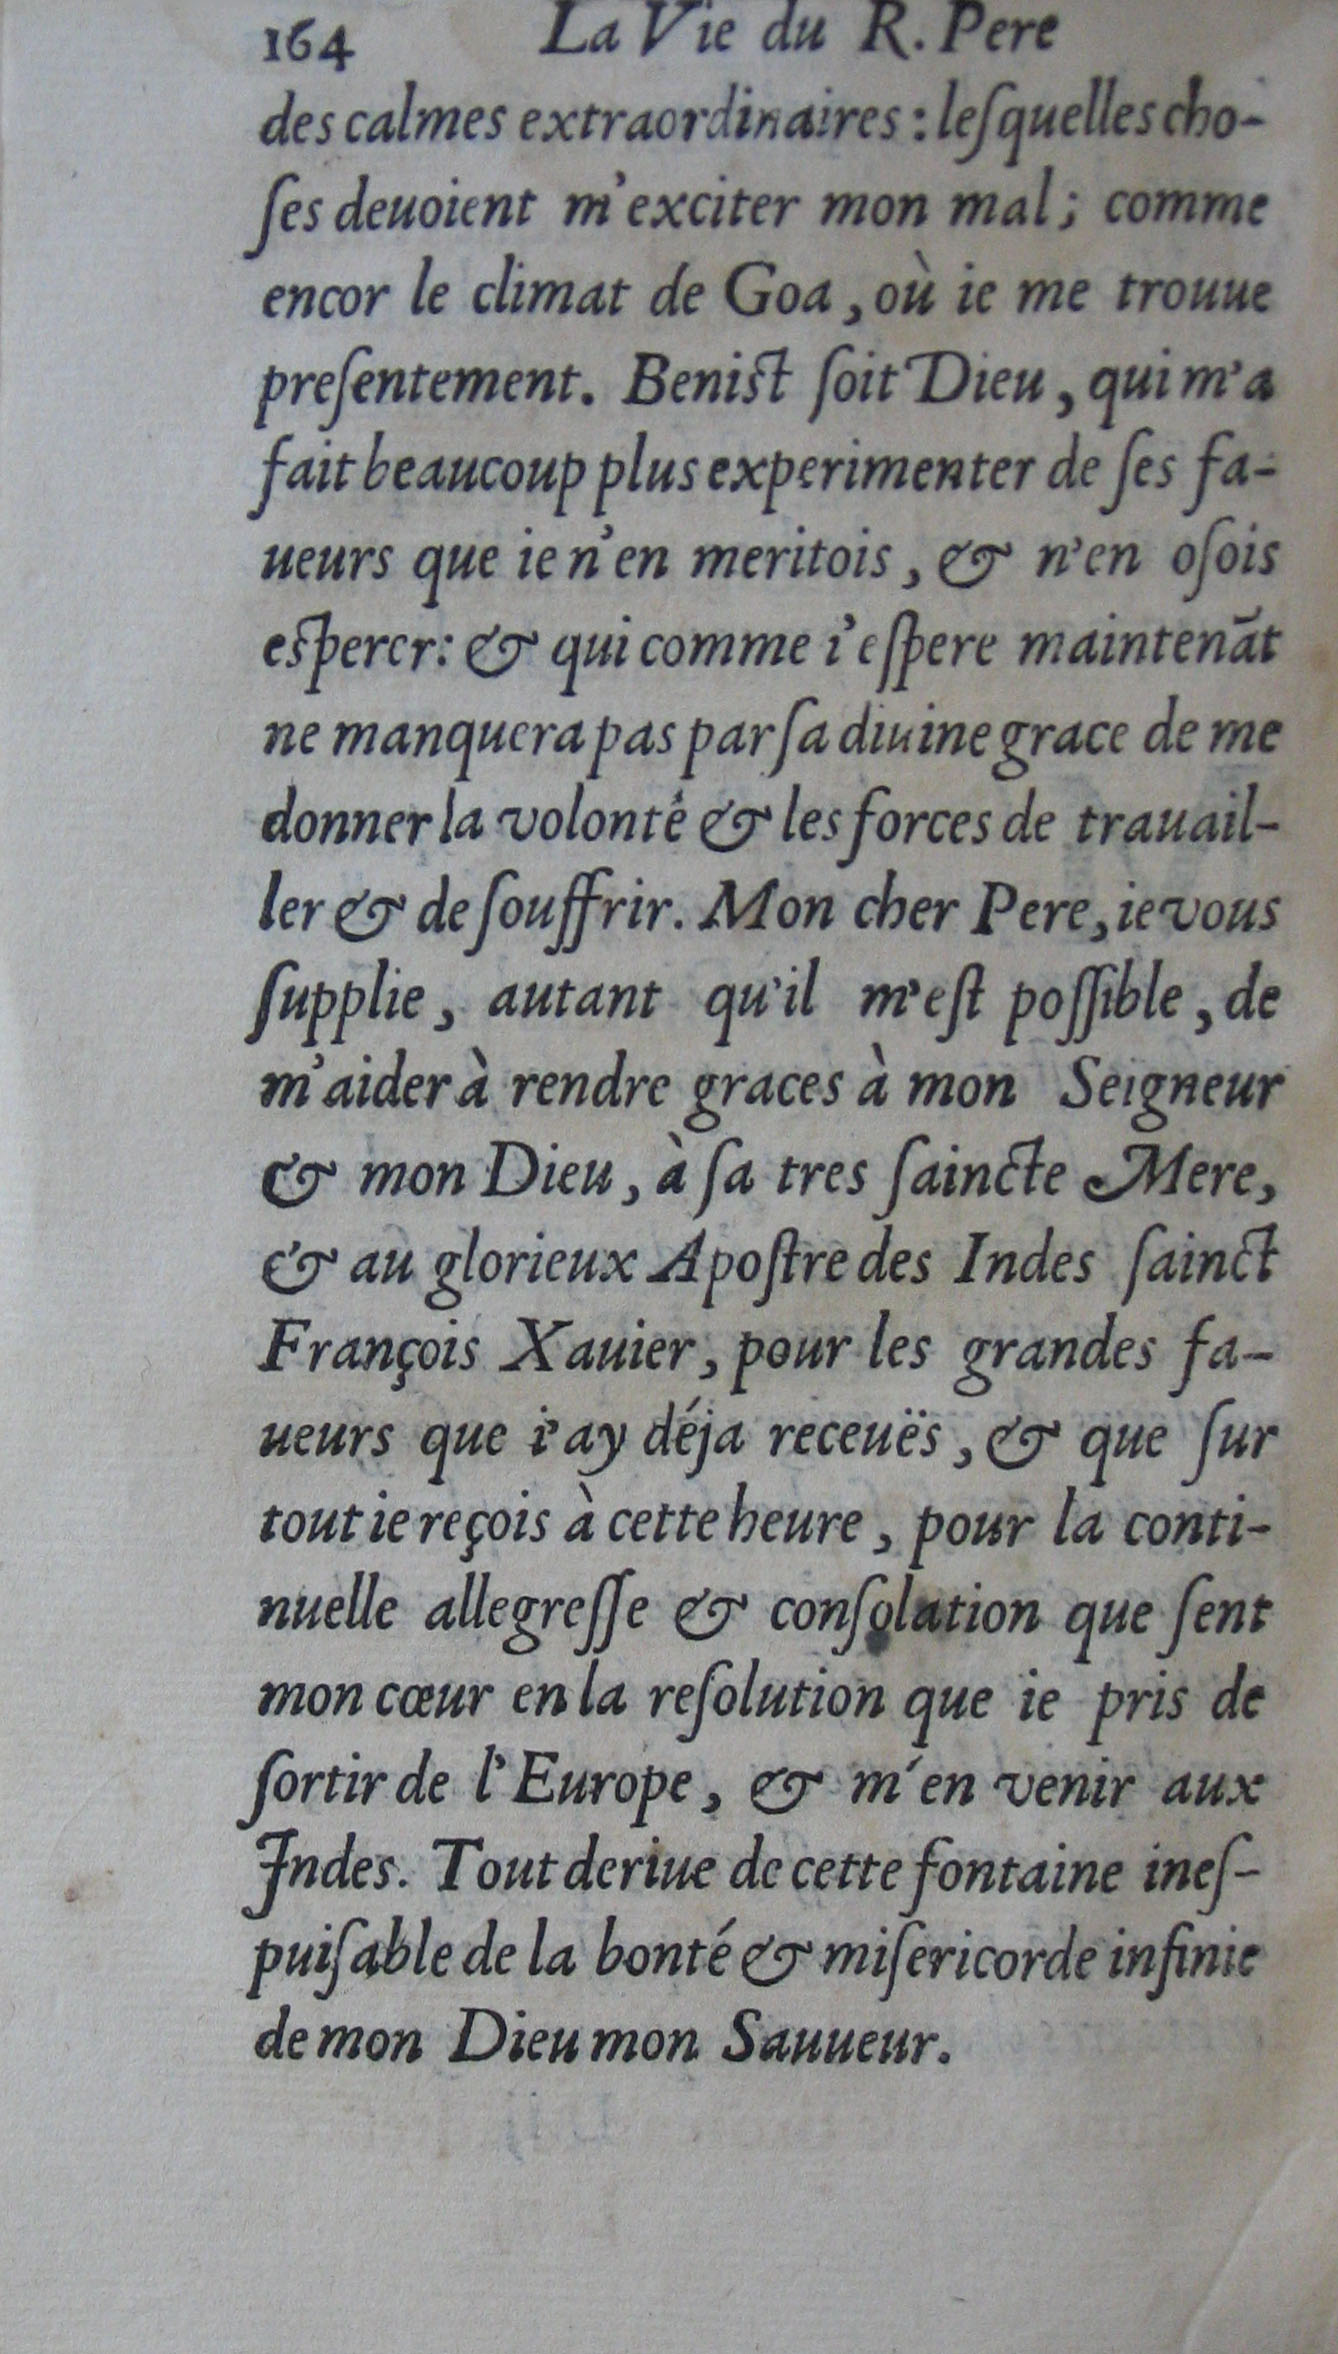 164 La Vie du R. Pere
des calmes extraordinaires : leſquelles cho-
ſes deuoient m'exciter mon mal ; comme
encor le climat de Goa , où ie me trouue
preſentement. Beniſt ſoit Dieu , qui m'a
fait beaucoup plus experimenter de ſes fa-
ueurs que ie n'en meritois , & n'en oſois
eſperer : & qui comme i'eſpere maintenãt
ne manquera pas par ſa diuine grace de me
donner la volonté & les forces de trauail-
ler & de ſouffrir. Mon cher Pere, ie vous
ſupplie , autant qu'il m'eſt poſſible , de
m'aider à rendre graces à mon Seigneur
& mon Dieu , à ſa tres ſaincte Mere,
& au glorieux Apoſtre des Indes ſainct
François Xauier, pour les grandes fa-
ueurs que i'ay déja receuës , & que ſur
tout ie reçois à cette heure , pour la conti-
nuelle allegreſſe & conſolation que ſent
mon cœur en la reſolution que ie pris de
ſortir de l'Europe , & m'en venir aux
Indes. Tout deriue de cette fontaine ineſ-
puiſable de la bonté & miſericorde infinie
de mon Dieu mon Sauueur.